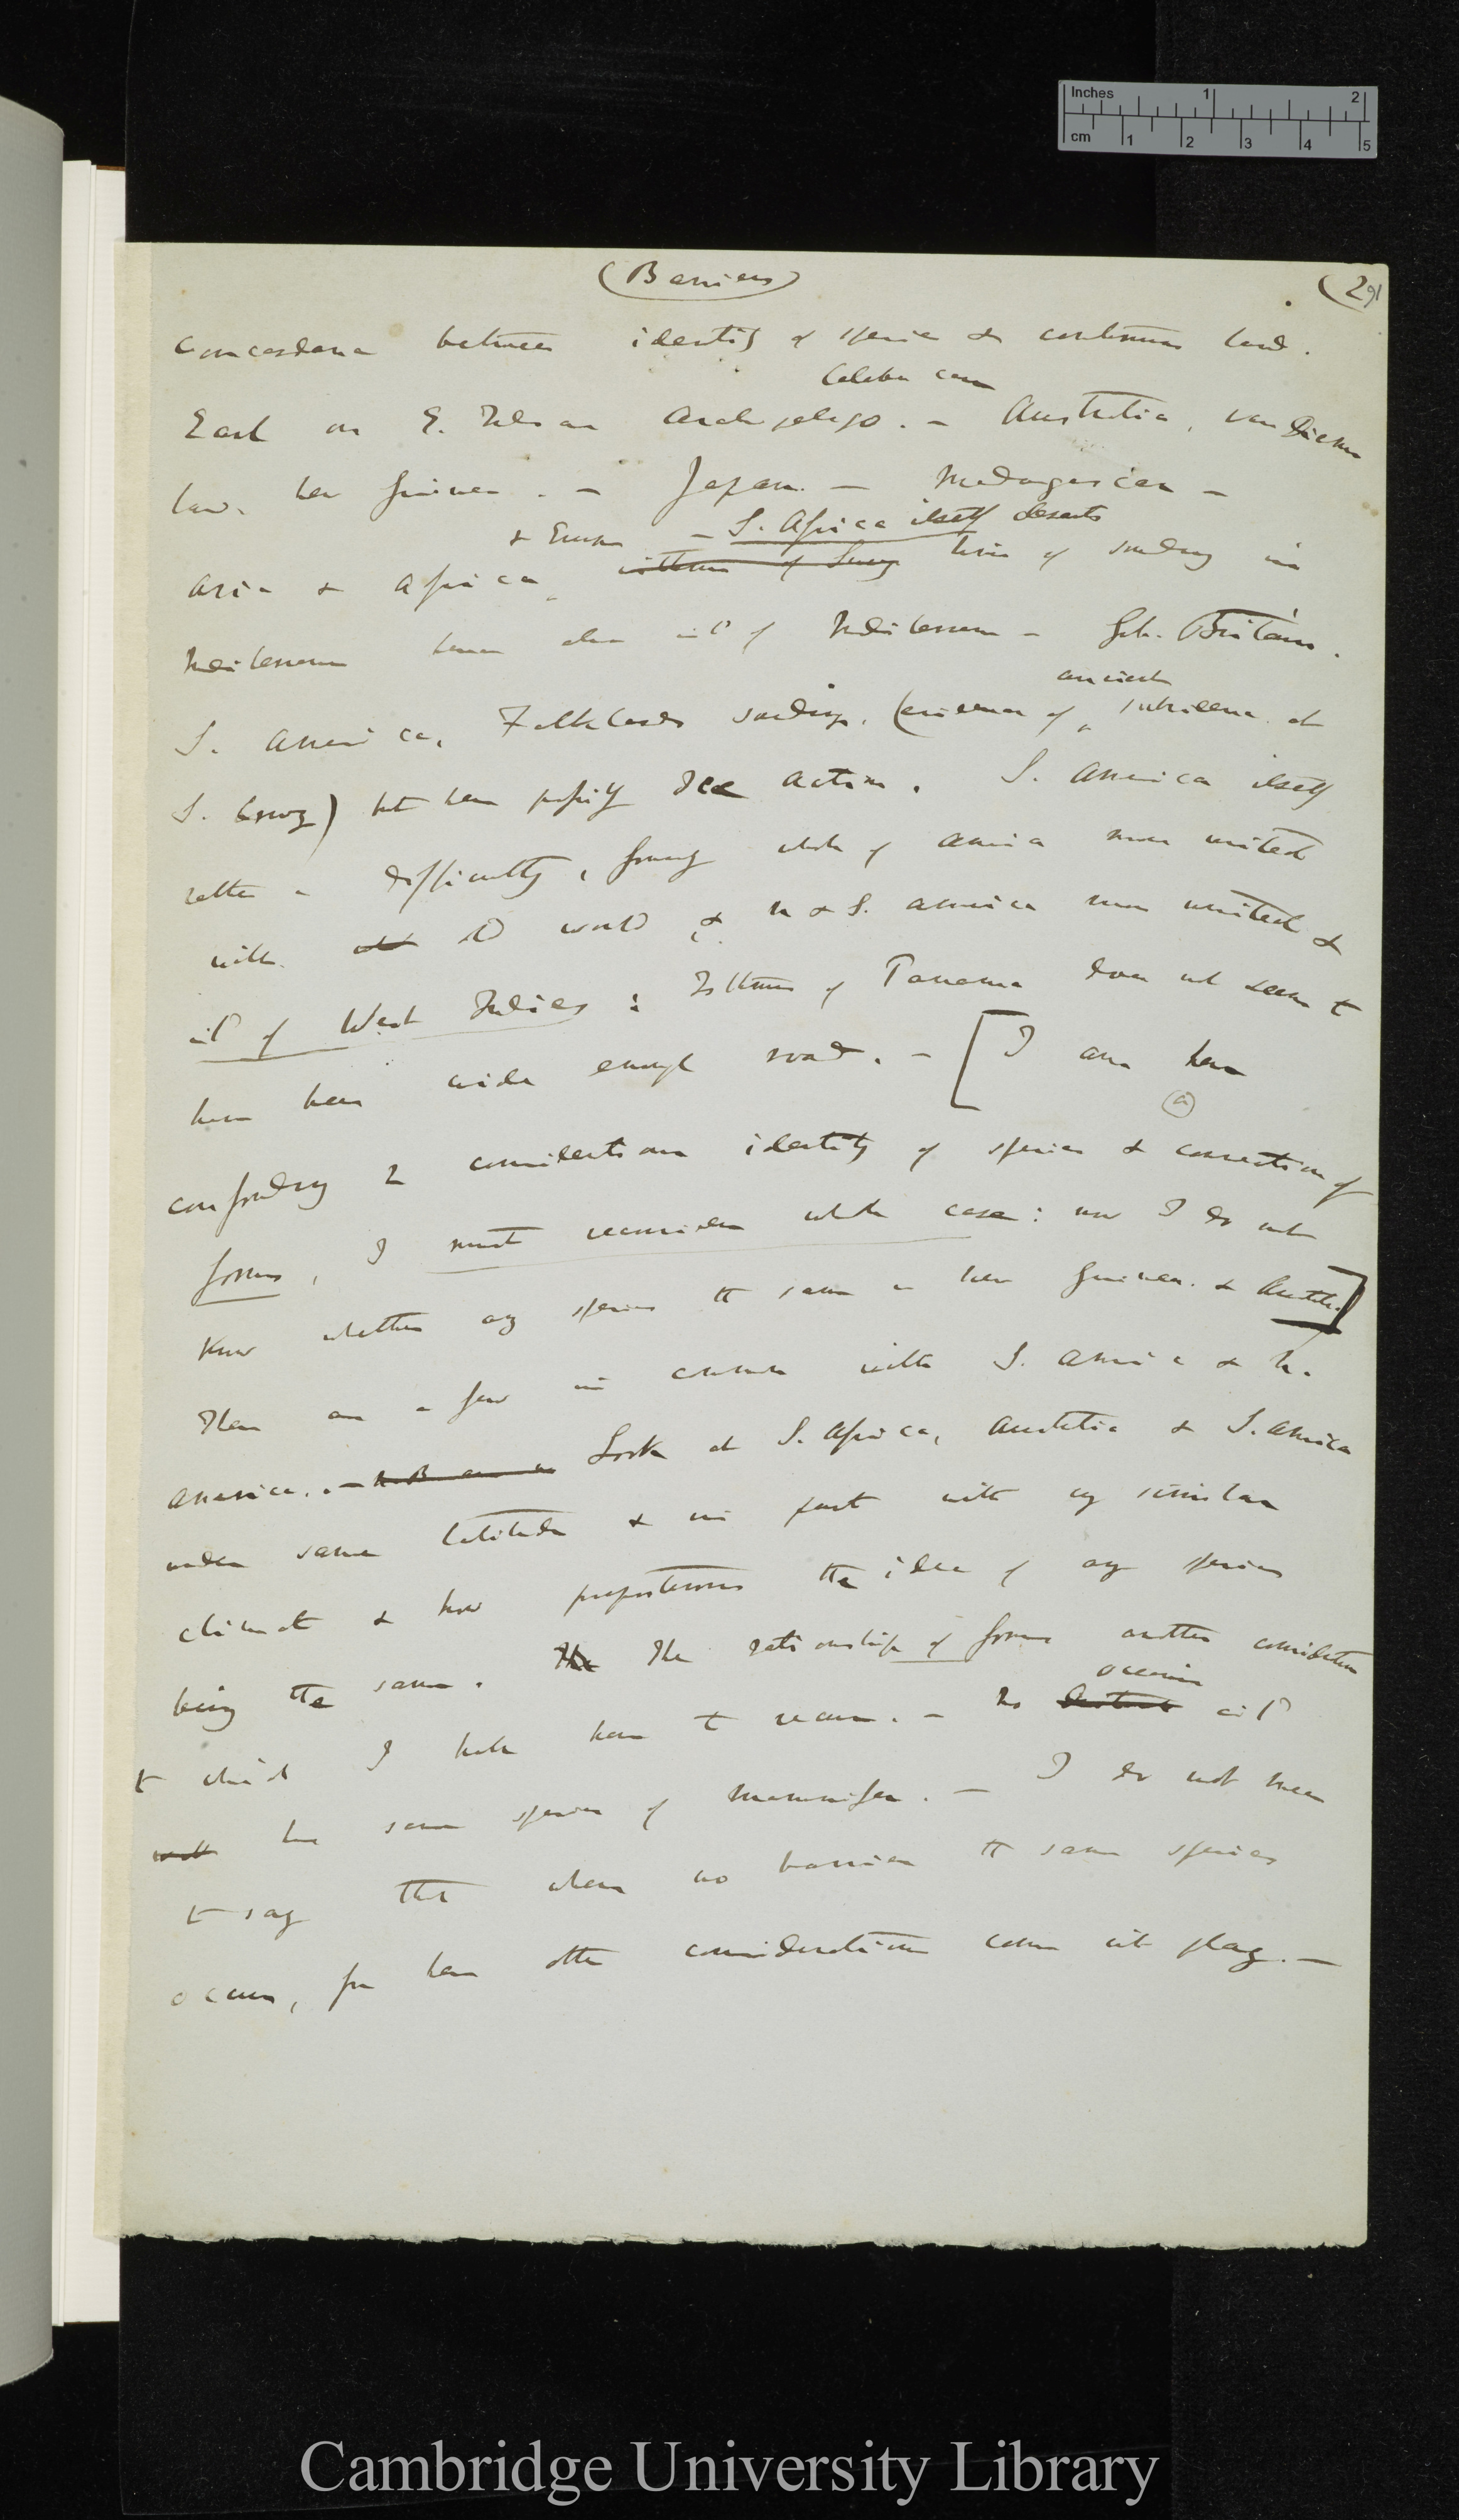 Inches 1 2
cm 1 2 3 4 5
(Barriers)
(291
Concordance between identity of species & continuous land.
Celebes case
Earl on E. Indian Archipelago. — Australia, Van Diemen
land. New Guinea. — Japan. — Madagascar —
& Europe — S. Africa itself deserts
Asia & Africa, isthmus of Suez line of soundings in
Mediterranean isld of Mediterranean — Grt. Britain.
ancient
S. America, Falklands soundings, (evidence of subsidence at
S. Georgia) but here possibly Ice action. S. America itself
rather a difficulty, formerly whole of America more united
with old world & N & S. America more united &
isld of West Indies: Isthmus of Panama does not seem to
have been wide enough road. — [I am here
(a)
confounding 2 considerations identity of species & connection of
forms, I must reconsider whole case: now I do not
know whether any species the same in New Guinea & Austrl.]
There are a few in common with S. America & N.
America. — N.B. Look at S. Africa, Australia & S. America
under same latitude & in part with very similar
climate & how preposterous the idea of any species
being the same. The The relationship of forms another consideration
oceanic
to which I shall have to recur. — No isld
with has same species of mammifer. — I do not mean
to say that where no barrier the same species
occurs, for here other considerations come into play. —
Cambridge University Library